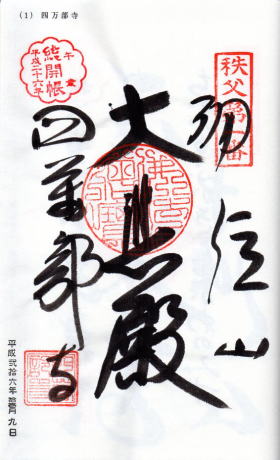 (1) 四万部寺
秩父第一番
午歳
総開帳
平成二十六年
誦経山
大悲殿
四萬部寺
平成弐拾六年 月九日